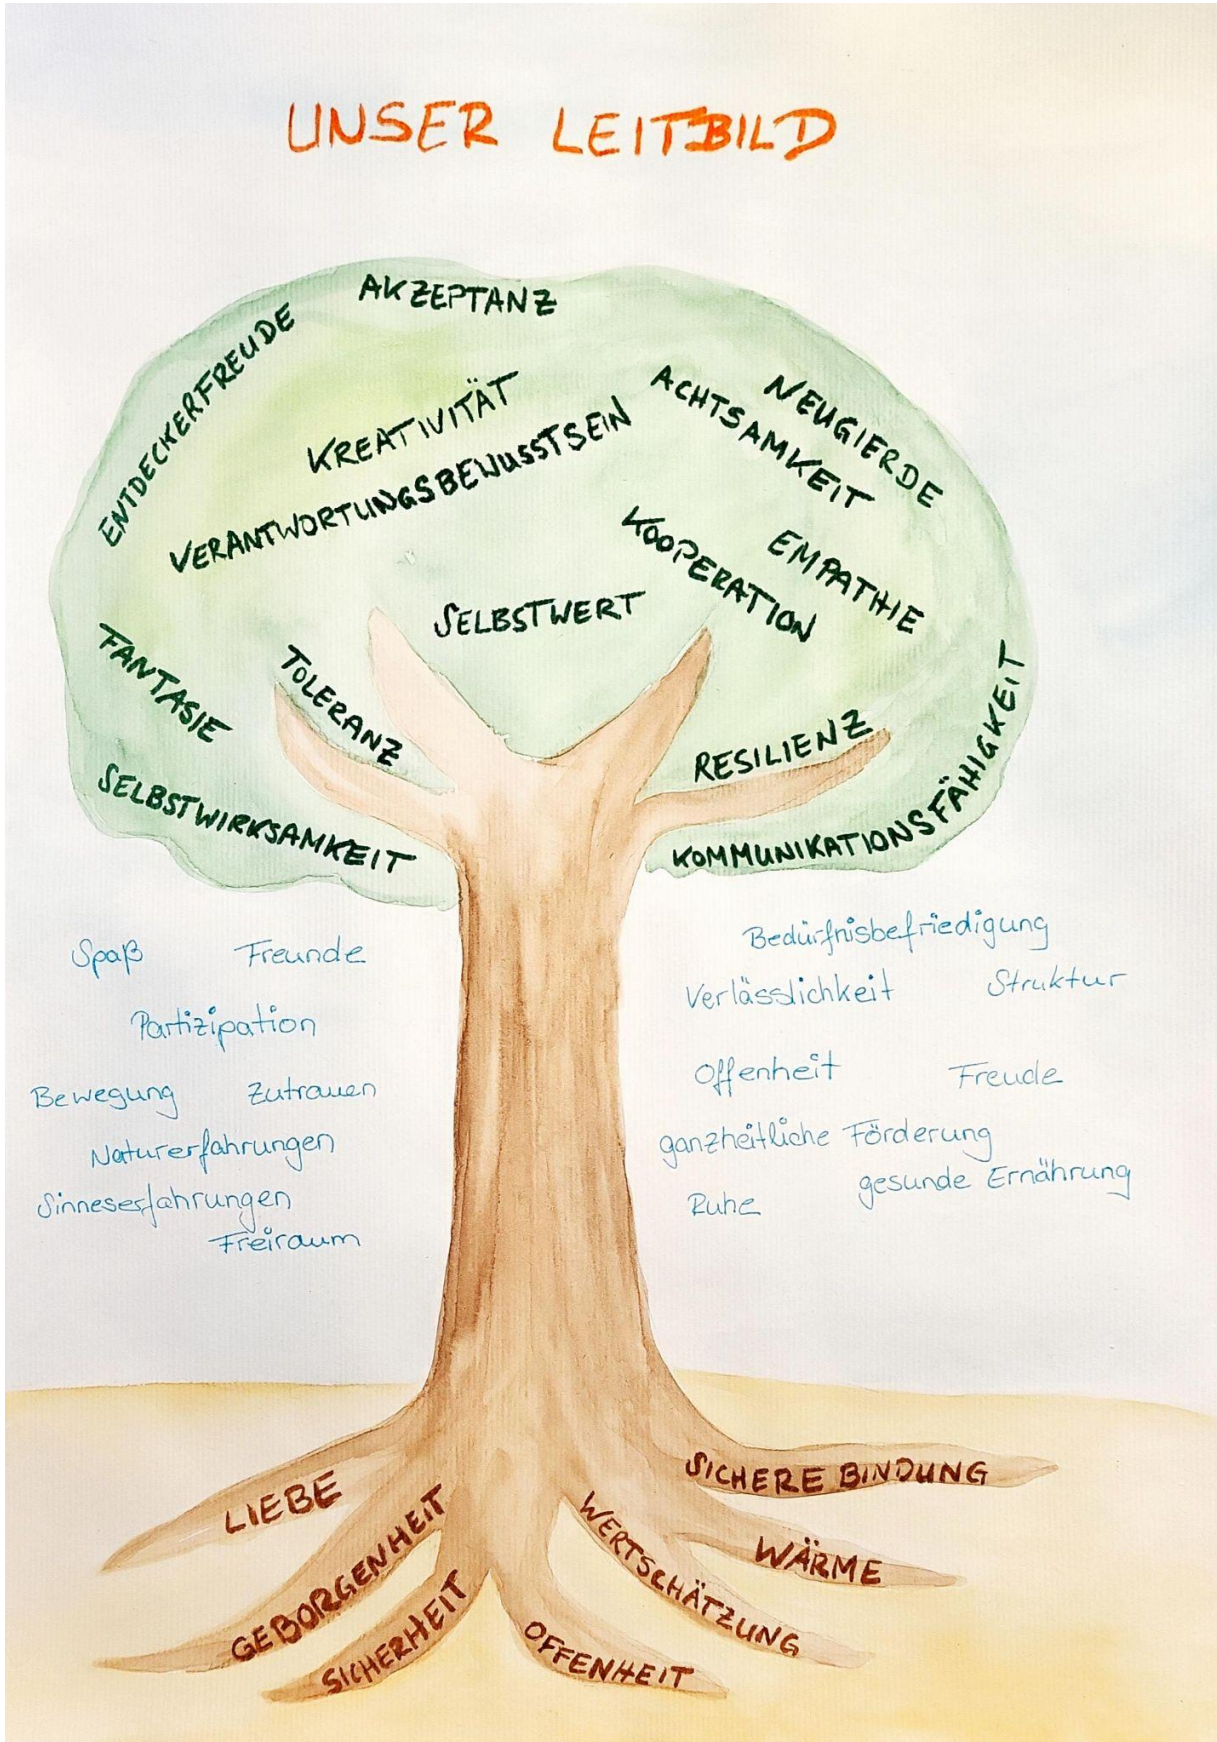 UNSER LEITBILD
AKZEPTANZ
ENTDECKERFREUDE
KREATIVITÄT
VERANTWORTUNGSBEWUSSTSEIN
ACHTSAMKEIT
NEUGIERDE
KOOPERATION
EMPATHIE
SELBSTWERT
FANTASIE
TOLERANZ
RESILIENZ
SELBSTWIRKSAMKEIT
KOMMUNIKATIONSFÄHIGKEIT
Spaß Freunde
Partizipation
Bewegung Zutrauen
Naturerfahrungen
Sinneserfahrungen
Freiraum
Bedürfnisbefriedigung
Verlässlichkeit Struktur
Offenheit Freude
ganzheitliche Förderung
gesunde Ernährung
Ruhe
LIEBE
GEBORGENHEIT
SICHERHEIT
OFFENHEIT
WERTSCHÄTZUNG
WÄRME
SICHERE BINDUNG